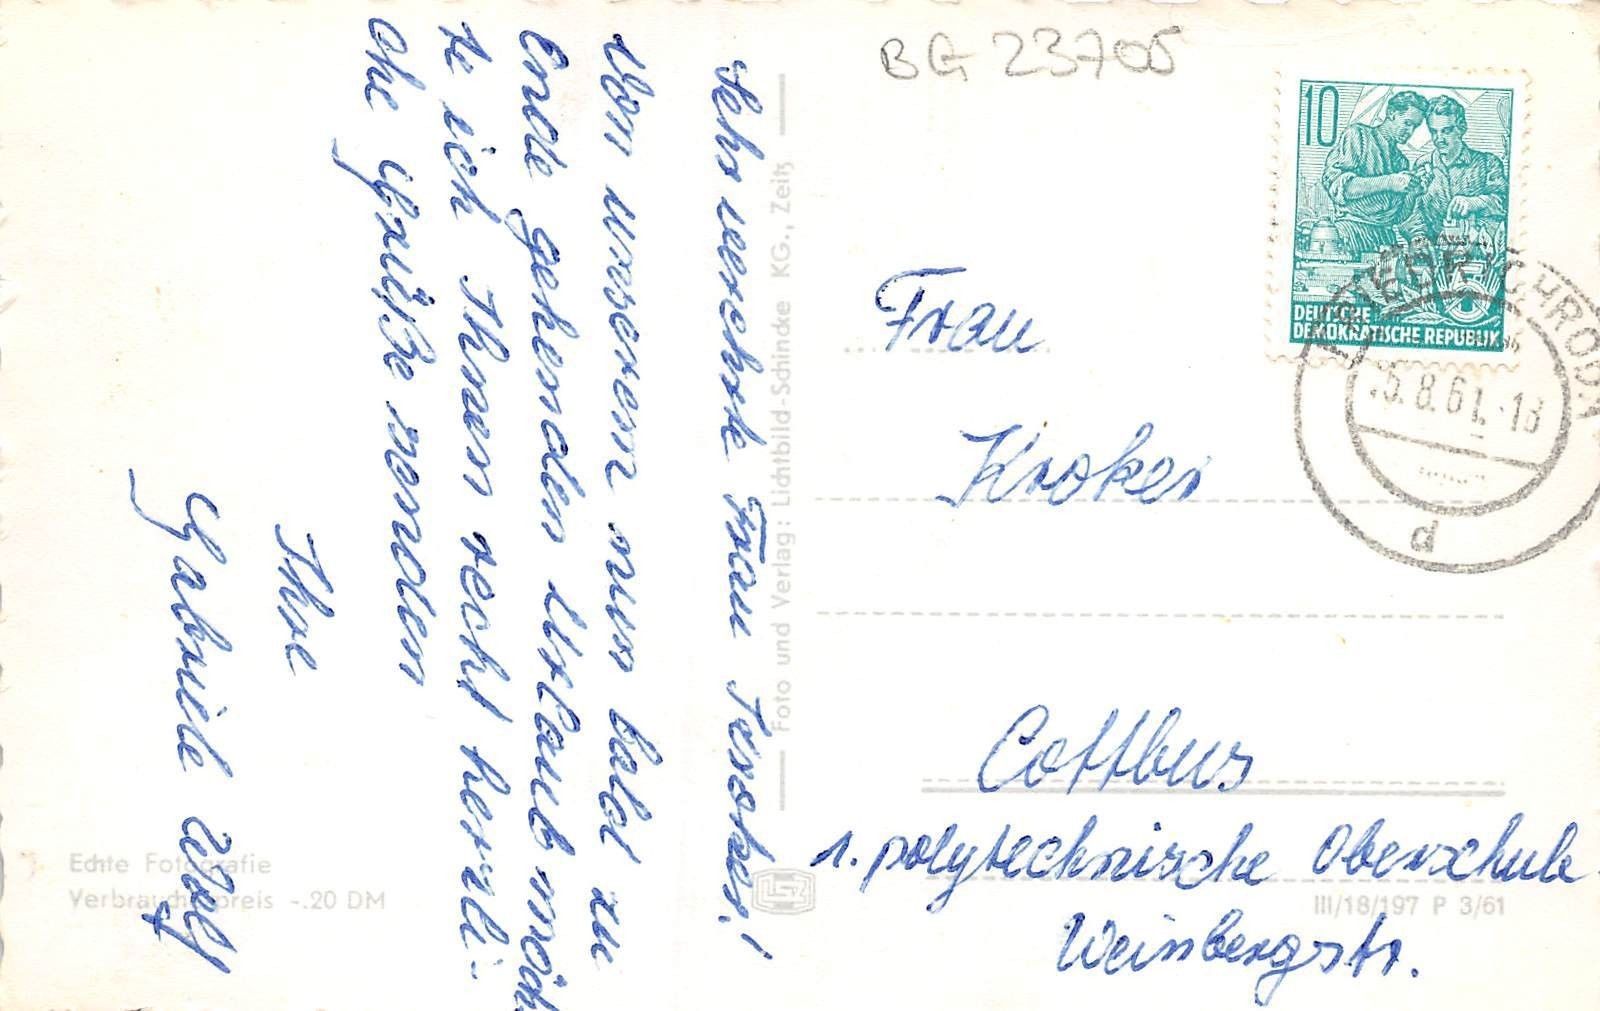 BG 23705
Sehr verehrte Frau
Von unserem nun bald zu
Ende gehenden Urlaub möch
te ich Ihnen recht herzli-
che Grüße senden
Ihre
Gabriele Wolf
Echte Fotografie
Verbraucherpreis -.20 DM
Foto und Verlag: Lichtbild-Schincke KG., Zeitz
10
DEUTSCHE
DEMOKRATISCHE REPUBLIK
FRIEDRICHRODA
5.8.61.-18
d
Frau
Kroker
Cottbus
1. polytechnische Oberschule
III/18/197 P 3/61
Weinbergstr.